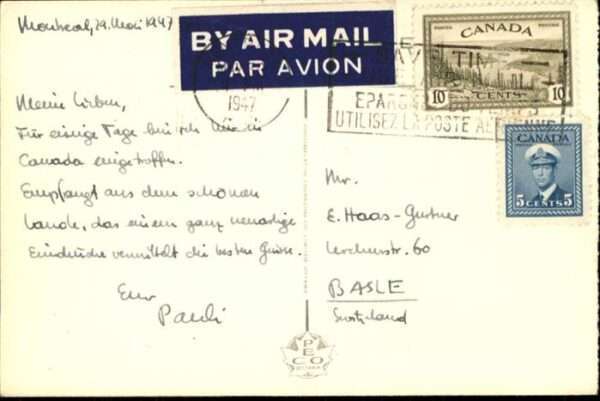 Montreal, 29. Mai 1947
BY AIR MAIL
PAR AVION
1947
SAVE TIME
EPARGNEZ DU TEMPS
UTILISEZ LA POSTE AERIENNE
POSTES POSTES
CANADA
10 CENTS 10
CANADA
5 CENTS 5
Meine Lieben,
Für einige Tage bin ich hier in
Canada eingetroffen.
Empfangt aus dem schönen
Lande, das einem ganz neuartige
Eindrücke vermittelt die besten Grüsse.
Euer
Pauli
Mr.
E. Haas-Gutner
Lerchenstr. 60
BASLE
Switzerland
PECO